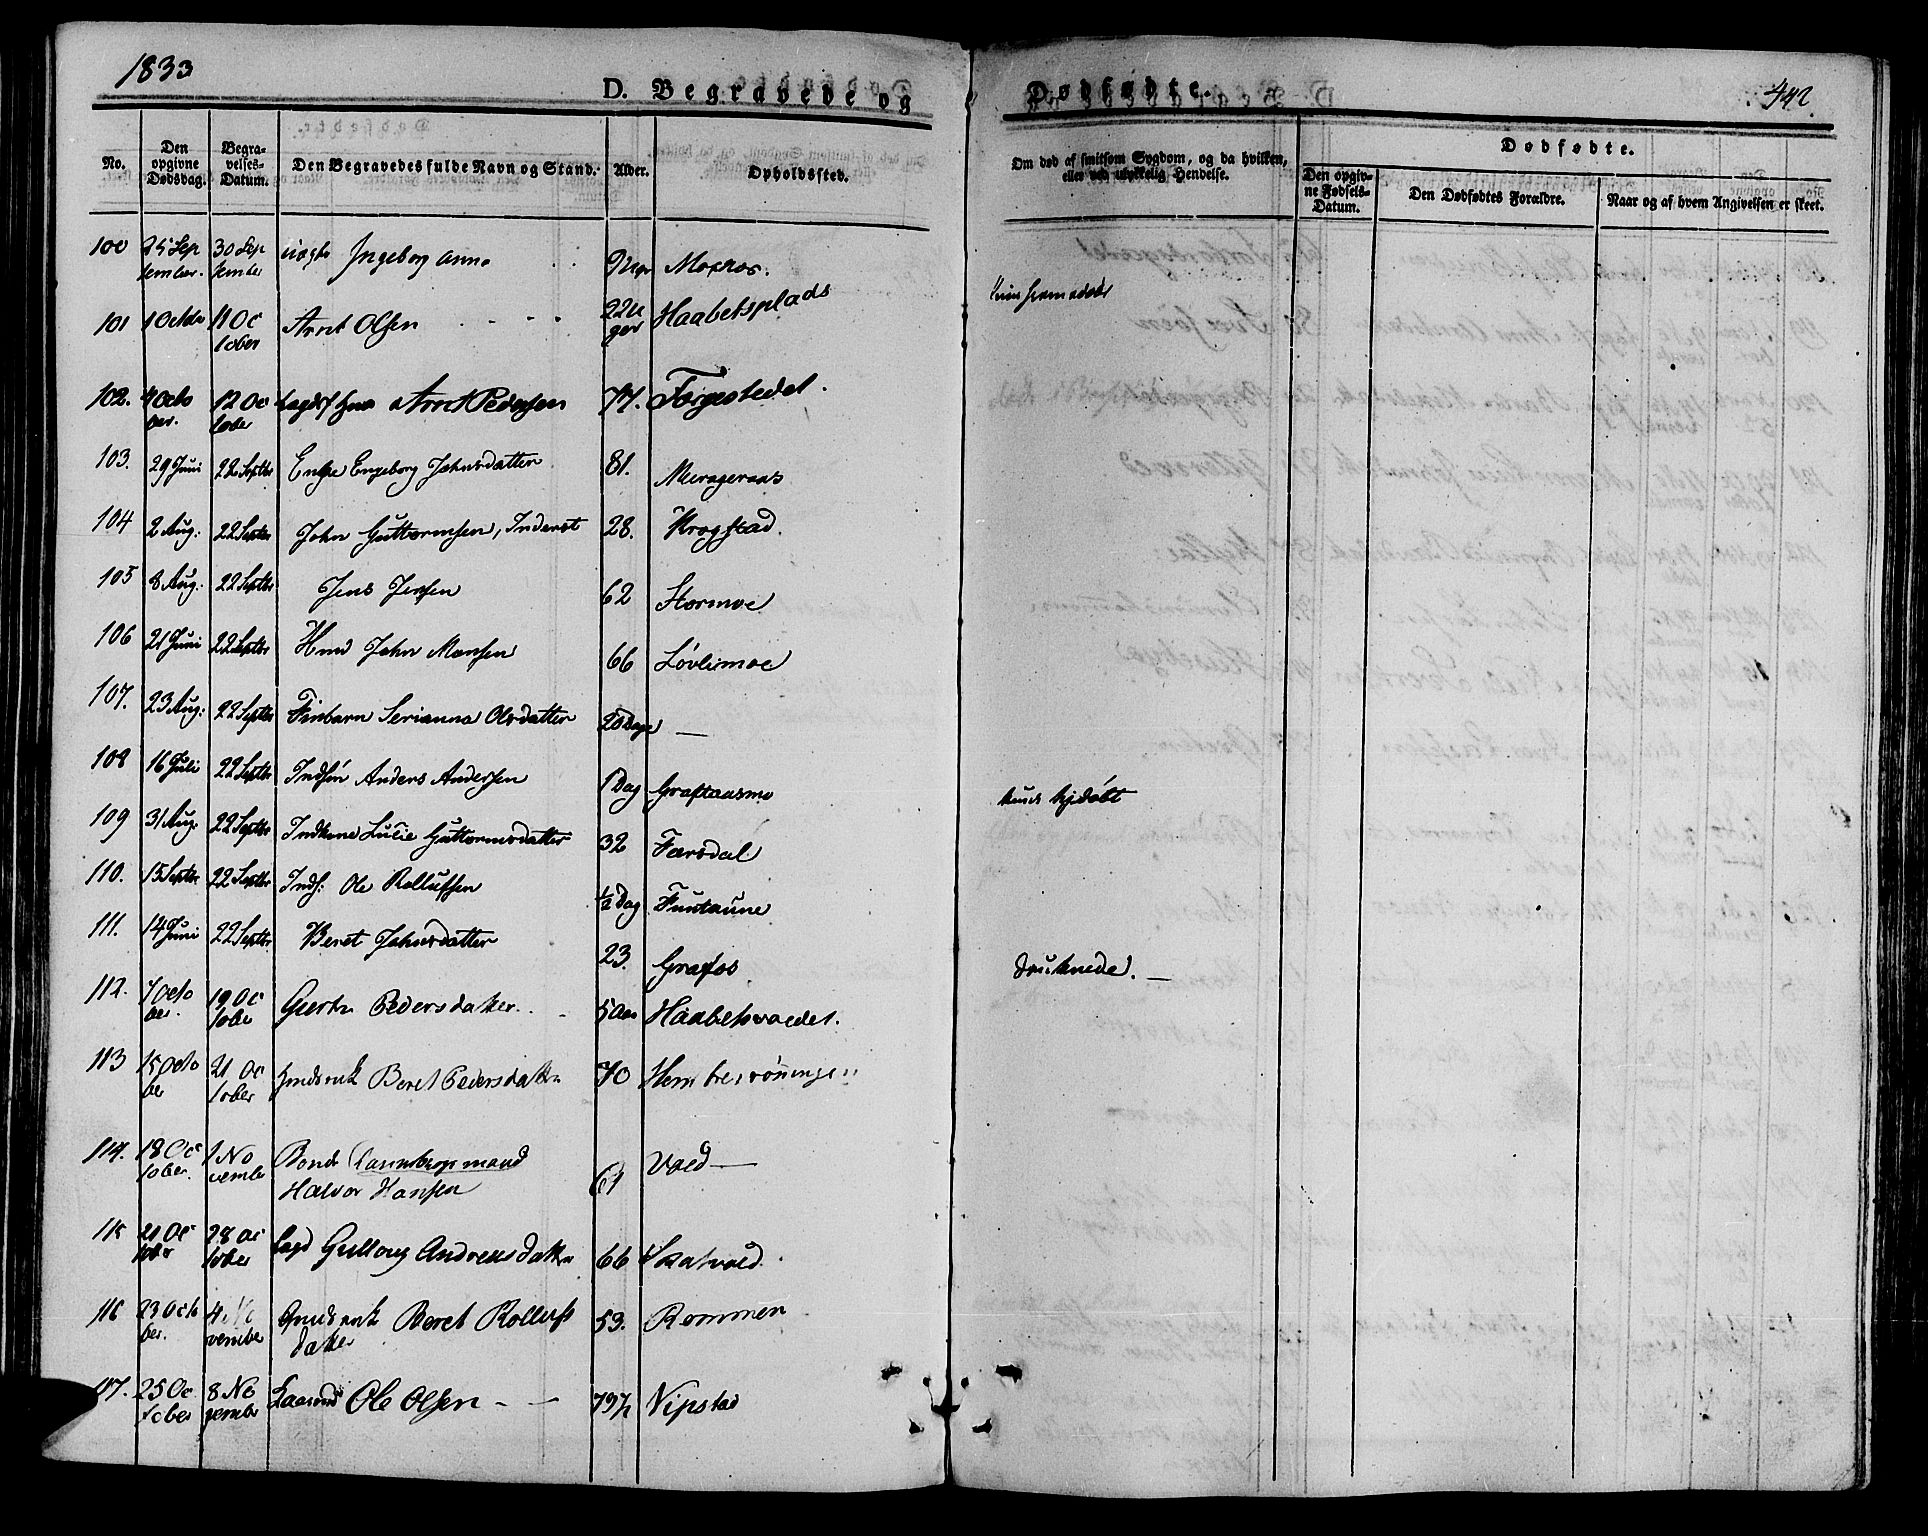 1833
D. Begravede og Dødfødte.
442.
No.
Den opgivne Dødsdag.
Begravelses-Datum.
Den Begravedes fulde Navn og Stand.
Alder.
Opholdssted.
Om død af smitsom Sygdom, og da hvilken, eller ved ulykkelig Hendelse.
Dødfødte.
Den opgivne Fødsels-Datum.
Den Dødfødtes Forældre.
Naar og af hvem Angivelsen er skeet.
100 25 September. 30 September uægte Ingeborg Anna Moxnes.
101 1 Octobr 11 October Arnt Olsen 22 Uger Haabetsplads
hiemmedøbt
102. 4 October. 12 October Arnt Pedersen 77. Færgestedet.
103. 29 Juni 22 Septbr Enke Engeborg Johnsdatter 81. Merageraas
104 2 Aug: 22 Septbr John Guttormsen, Inderst 28. Krogstad.
105 8 Aug: 22 Septbr Jens Jensen 62 Stormoe
106 21 Juni 22 Septbr Hmd John Monsen 66 Løvlimoe
107. 23 Aug: 22 Septbr Serianna Olsdatter 20 Dage —
108 16 Juli 22 Septbr Indsøn Anders Andersen 1 Dag Graftaasmo
hiemmedøbt
109 31 Aug. 22 Septbr Indkone Lucie Guttormsdatter 32 Færsdal
110. 15 Septbr 22 Septbr Inds: Ole Rolluffsen ½ Dag Funtaune
111. 14 Juni 22 Septbr Beret Johnsdatter 23. Graffos
druknede. —
112. 7 October. 19 October Giertr Pedersdatter. 5 Aar Haabetsvoldet.
113 15 October 21 October Beret Pedersdattr 70
114. 18 October. 1 November Bonde Dannebrogsmand
Halvor Hansen 61 Vold —
115 21 October 28 October Gullaug Andreasdattr 66 Skatvold.
116 23 October. 4. November Beret Rollufs
datter 53. Rommen
117. 25 October 8 November Ole Olsen — — 79½ Vipstad